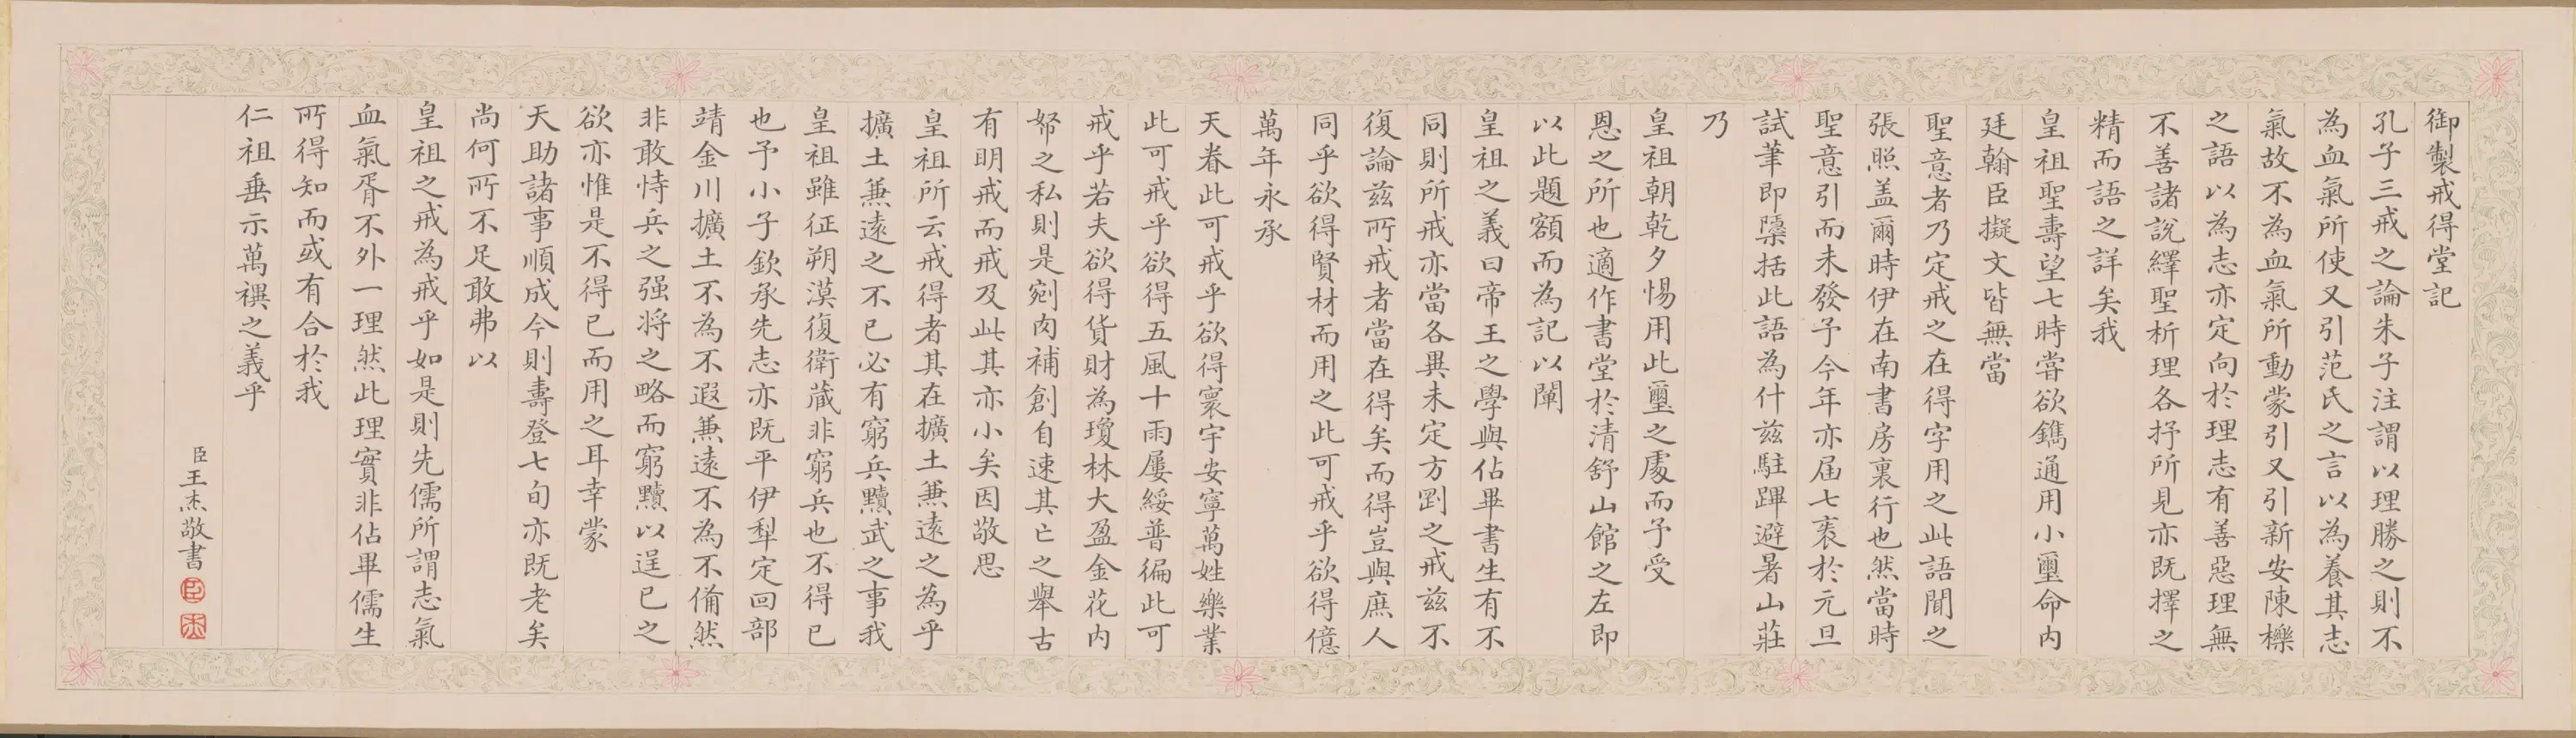 御製戒得堂記
孔子三戒之論朱子注謂以理勝之則不
為血氣所使又引范氏之言以為養其志
氣故不為血氣所動蒙引又引新安陳櫟
之語以為志亦定向於理志有善惡理無
不善諸說繹聖析理各抒所見亦既擇之
精而語之詳矣我
皇祖聖壽望七時嘗欲鐫通用小璽命内
廷翰臣擬文皆無當
聖意者乃定戒之在得字用之此語聞之
張照盖爾時伊在南書房裏行也然當時
聖意引而未發予今年亦届七袠於元旦
試筆即檃括此語為什兹駐蹕避暑山莊
乃
皇祖朝乾夕惕用此璽之處而予受
恩之所也適作書堂於清舒山館之左即
以此題額而為記以闡
皇祖之義曰帝王之學與佔畢書生有不
同則所戒亦當各異未定方劉之戒兹不
復論兹所戒者當在得矣而得豈與庶人
同乎欲得賢材而用之此可戒乎欲得億
萬年永承
天眷此可戒乎欲得寰宇安寧萬姓樂業
此可戒乎欲得五風十雨屢綏普徧此可
戒乎若夫欲得貨財為瓊林大盈金花内
帑之私則是剜肉補創自速其亡之舉古
有明戒而戒及此其亦小矣因敬思
皇祖所云戒得者其在擴土兼遠之為乎
擴土兼遠之不已必有窮兵黷武之事我
皇祖雖征朔漠復衛藏非窮兵也不得已
也予小子欽承先志亦既平伊犁定回部
靖金川擴土不為不遐兼遠不為不備然
非敢恃兵之强将之略而窮黷以逞已之
欲亦惟是不得已而用之耳幸蒙
天助諸事順成今則壽登七旬亦既老矣
尚何所不足敢弗以
皇祖之戒為戒乎如是則先儒所謂志氣
血氣胥不外一理然此理實非佔畢儒生
所得知而或有合於我
仁祖垂示萬禩之義乎
臣王杰敬書
臣
杰